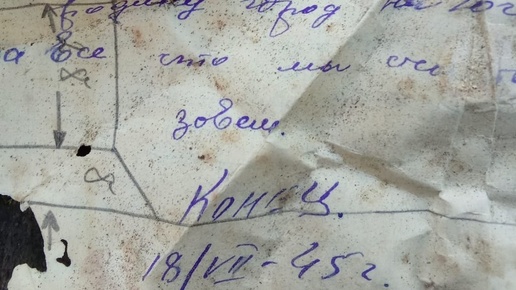 родину город на
а все что мы
зовем.
Конец.
18/VII-45 г.
8